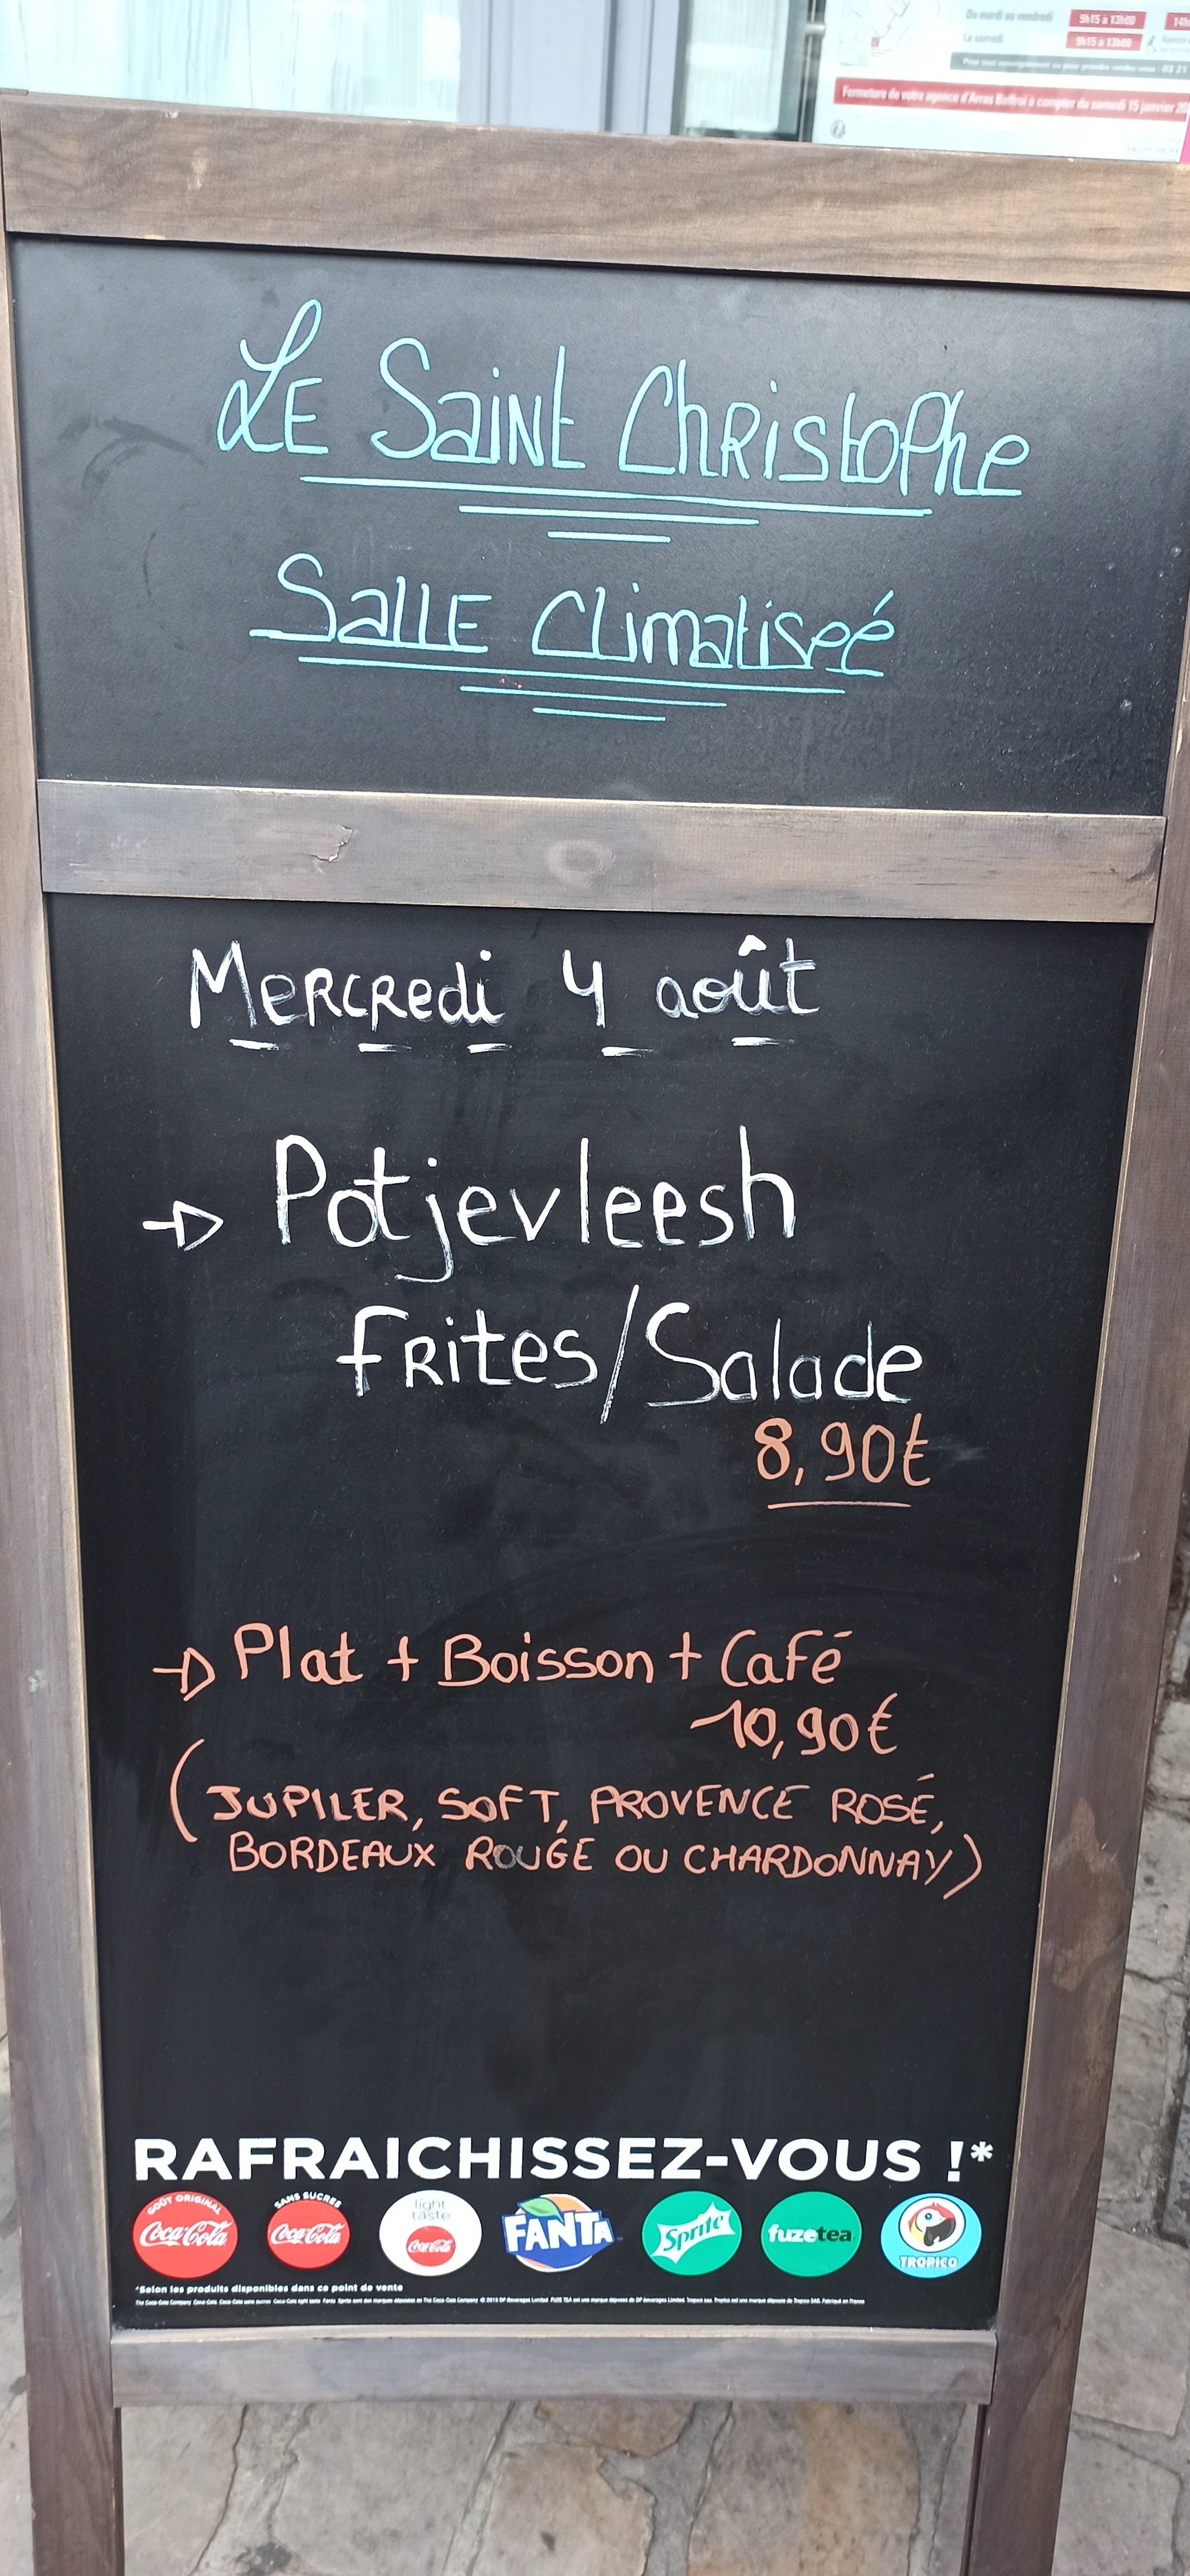 Du mardi au vendredi 9h15 à 13h00
Le samedi 9h15 à 13h00
Pour tout renseignement ou pour prendre rendez-vous : 03 21
Fermeture de votre agence d'Arras Beffroi à compter du samedi 15 janvier
LE SAINT ChRistophe
SallE Climatiseé
MeRcRedi 4 août
Potjevleesh
fRites/Salade
8,90€
Plat + Boisson + Café
10,90€
(JUPILER, SOFT, PROVENCE ROSÉ,
BORDEAUX ROUGE OU CHARDONNAY)
RAFRAICHISSEZ-VOUS !*
GOÛT ORIGINAL Coca-Cola
SANS SUCRES Coca-Cola
light taste Coca-Cola
FANTA
Sprite
fuzetea
TROPICO
*Selon les produits disponibles dans ce point de vente